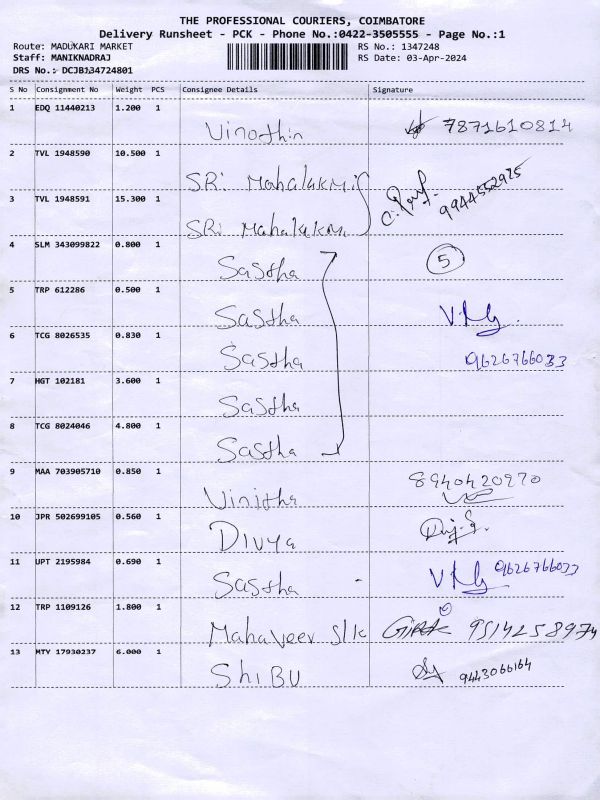 THE PROFESSIONAL COURIERS, COIMBATORE
Delivery Runsheet - PCK - Phone No.:0422-3505555 - Page No.:1
Route: MADUKARI MARKET RS No.: 1347248
Staff: MANIKNADRAJ RS Date: 03-Apr-2024
DRS No.: DCJB134724801
S No Consignment No Weight PCS Consignee Details Signature
1 EDQ 11440213 1.200 1
Vinothin 7871610814
2 TVL 1948590 10.500 1
SRi Mahalakmi
3 TVL 1948591 15.300 1 9944552975
SRi Mahalakmi
4 SLM 343099822 0.800 1
Sastha 5
5 TRP 612286 0.500 1
Sastha
6 TCG 8026535 0.830 1
Sastha 9626766033
7 HGT 102181 3.600 1
Sastha
8 TCG 8024046 4.800 1
Sastha
9 MAA 703905710 0.850 1
Vinitha 8940420970
10 JPR 502699105 0.560 1
Divya
11 UPT 2195984 0.690 1
Sastha 9626766033
12 TRP 1109126 1.800 1
Mahaveer Slk 9514258974
13 MTY 17930237 6.000 1
SHIBU 9443066164